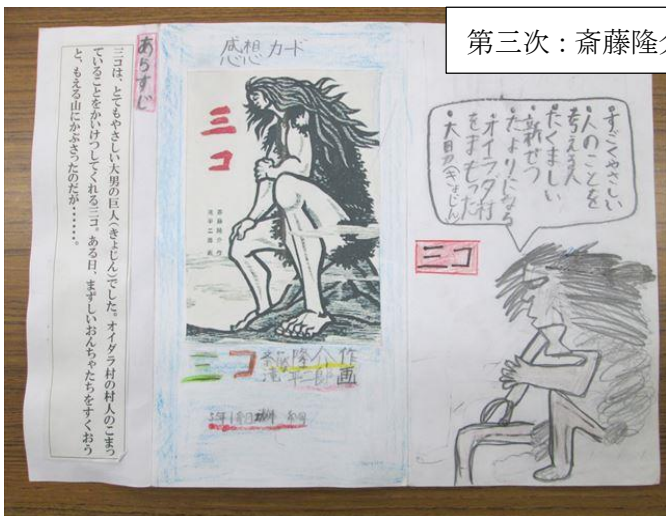 第三次：斎藤隆介
感想カード
あらすじ
三コは、とてもやさしい大男の巨人(きょじん)でした。オイダラ村の村人のこまっ
ていることをかいけつしてくれる三コ。ある日、まずしいおんちゃたちをすくおう
と、もえる山にかぶさったのだが……。
三コ
斎藤隆介 作
滝平二郎 画
三コ
斎藤隆介 作
滝平二郎 画
・すごくやさしい
・人のことを
考える人
・たくましい
・新せつ
・たよりになる
・オイダラ村
をまもった
・大男(きょじん)
三コ